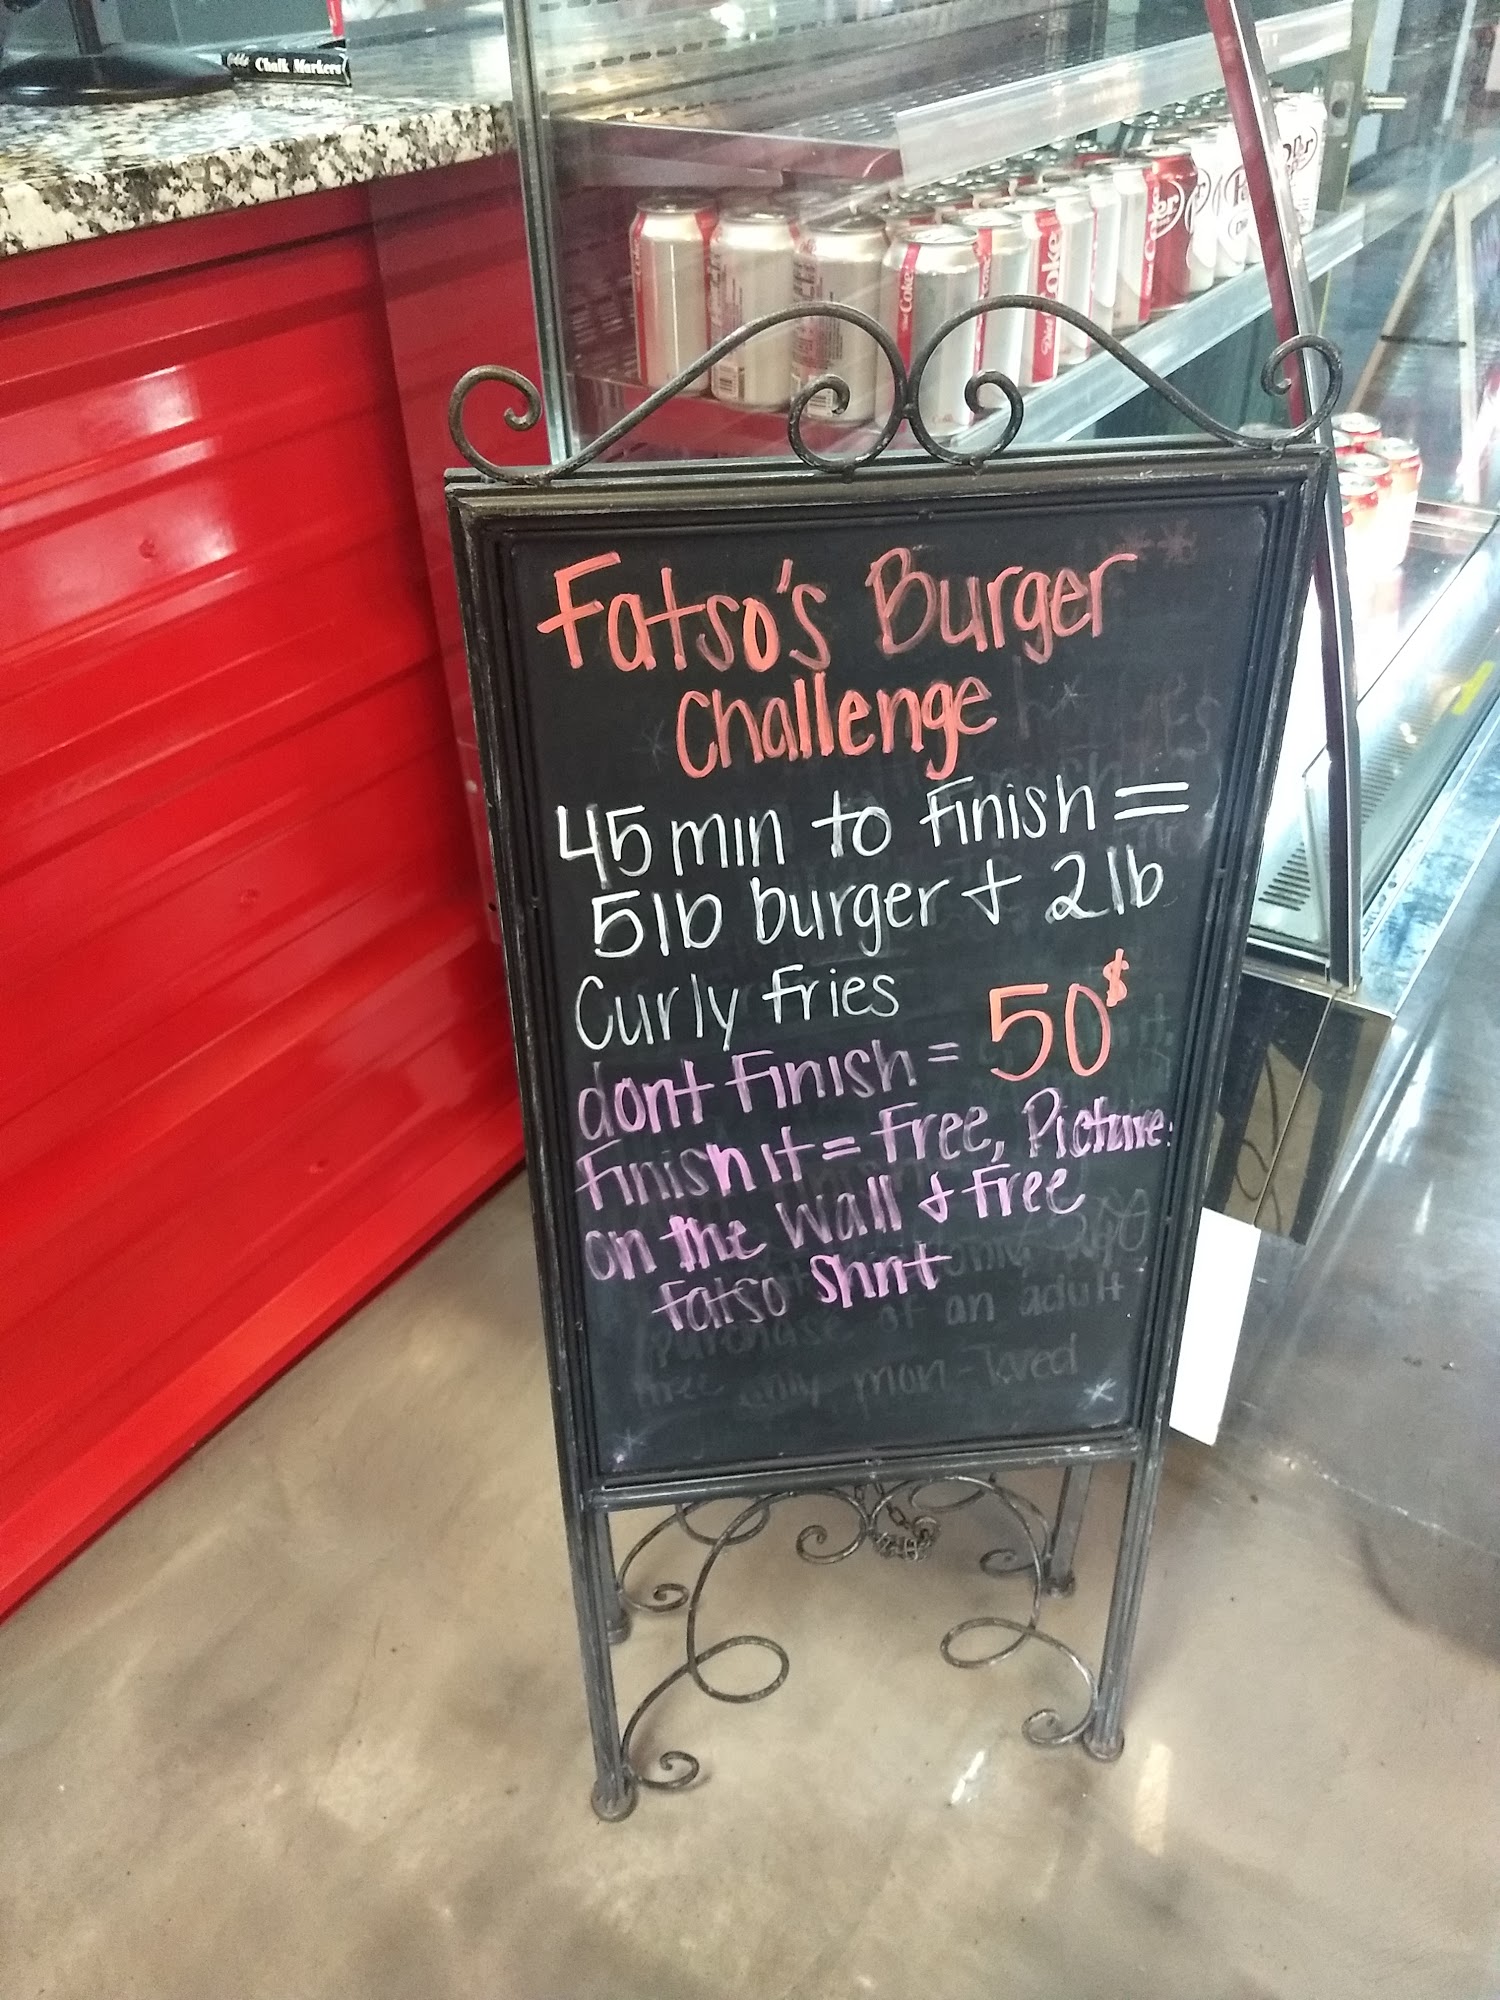 Chalk Markers
Coke
Coke
Diet Coke
Fatso's Burger
Challenge
45 min to Finish =
5lb burger + 2lb
Curly Fries
dont Finish = 50$
Finish it = Free, Picture
on the wall & Free
Fatso Shirt
purchase of an adult
free only mon-wed